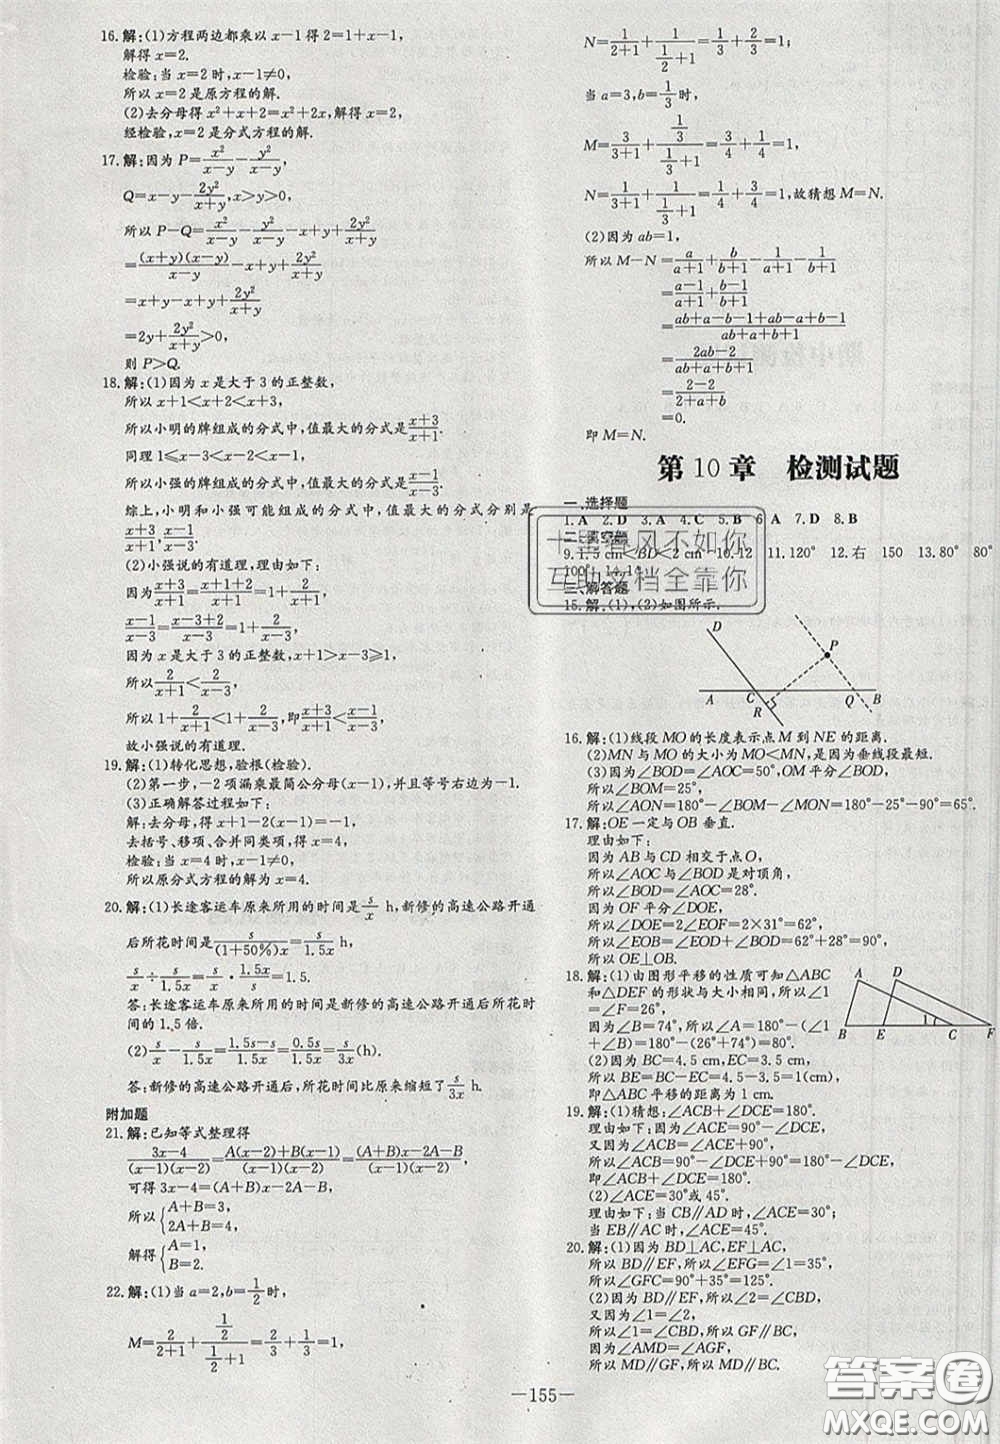 16.解:(1)方程两边都乘以x−1得2=1+x−1,
解得x=2.
检验:当x=2时,x−1≠0,
所以x=2是原方程的解.
(2)去分母得x²+x+2=x²+2x,解得x=2,
经检验,x=2是分式方程的解.
17.解:因为P=x²/(x−y)−y²/(x−y),
Q=x−y−2y²/(x+y),x>y>0,
所以P−Q=x²/(x−y)−y²/(x−y)−x+y+2y²/(x+y)
=(x+y)(x−y)/(x−y)−x+y+2y²/(x+y)
=x+y−x+y+2y²/(x+y)
=2y+2y²/(x+y)>0,
则P>Q.
18.解:(1)因为x是大于3的正整数,
所以x+1<x+2<x+3,
所以小明的牌组成的分式中,值最大的分式是(x+3)/(x+1).
同理1≤x−3<x−2<x−1,
所以小强的牌组成的分式中,值最大的分式是(x−1)/(x−3).
综上,小明和小强可能组成的分式中,值最大的分式分别是
(x+3)/(x+1),(x−1)/(x−3).
(2)小强说的有道理,理由如下:
因为(x+3)/(x+1)=(x+1+2)/(x+1)=1+2/(x+1),
(x−1)/(x−3)=(x−3+2)/(x−3)=1+2/(x−3),
因为x是大于3的正整数,x+1>x−3≥1,
所以2/(x+1)<2/(x−3),
所以1+2/(x+1)<1+2/(x−3),即(x+3)/(x+1)<(x−1)/(x−3),
故小强说的有道理.
19.解:(1)转化思想,验根(检验).
(2)第一步,−2项漏乘最简公分母(x−1),并且等号右边没变号.
(3)正确解答过程如下:
解:去分母,得x+1−2(x−1)=−1,
去括号、移项、合并同类项,得x=4,
检验:当x=4时,x−1≠0,
所以原分式方程的解为x=4.
20.解:(1)长途客运车原来所用的时间是s/x h,新修的高速公路开通
后所花时间是s/((1+50%)x)=s/1.5x h,
s/x÷s/1.5x=s/x·1.5x/s=1.5.
答:长途客运车原来所用的时间是新修的高速公路开通后所花时
间的1.5倍.
(2)s/x−s/1.5x=(1.5s−s)/1.5x=0.5s/1.5x=s/3x(h).
答:新修的高速公路开通后,所花时间比原来缩短了s/3x h.
附加题
21.解:已知等式整理得
(3x−4)/((x−1)(x−2))=(A(x−2)+B(x−1))/((x−1)(x−2))=((A+B)x−2A−B)/((x−1)(x−2)),
可得3x−4=(A+B)x−2A−B,
所以{A+B=3,
2A+B=4,
解得{A=1,
B=2.
22.解:(1)当a=2,b=1/2时,
M=2/(2+1)+(1/2)/(1/2+1)=2/3+1/3=1,
N=1/(2+1)+1/(1/2+1)=1/3+2/3=1;
当a=3,b=1/3时,
M=3/(3+1)+(1/3)/(1/3+1)=3/4+1/4=1,
N=1/(3+1)+1/(1/3+1)=1/4+3/4=1,故猜想M=N.
(2)因为ab=1,
所以M−N=a/(a+1)+b/(b+1)−1/(a+1)−1/(b+1)
=(a−1)/(a+1)+(b−1)/(b+1)
=(ab+a−b−1+ab−a+b−1)/(ab+a+b+1)
=(2ab−2)/(ab+a+b+1)
=(2−2)/(2+a+b)
=0.
即M=N.
第10章 检测试题
一、选择题
1.A 2.D 3.A 4.C 5.B 6.A 7.D 8.B
二、填空题
9.1.5 cm<BD<2 cm 10.12 11.120° 12.右 150 13.80° 80°
100° 14.14
三、解答题
15.解:(1),(2)如图所示.
D
P
A C Q B
R
16.解:(1)线段MO的长度表示点M到NE的距离.
(2)MN与MO的大小为MO<MN,是因为垂线段最短.
(3)因为∠BOD=∠AOC=50°,OM平分∠BOD,
所以∠BOM=25°,
所以∠AON=180°−∠BOM−∠MON=180°−25°−90°=65°.
17.解:OE一定与OB垂直.
理由如下:
因为AB与CD相交于点O,
所以∠AOC与∠BOD是对顶角,
所以∠BOD=∠AOC=28°.
因为OF平分∠DOE,
所以∠DOE=2∠EOF=2×31°=62°,
所以∠EOB=∠EOD+∠BOD=62°+28°=90°,
所以OE⊥OB.
18.解:(1)由图形平移的性质可知△ABC
和△DEF的形状与大小相同,所以∠1
=∠F=26°,
因为∠B=74°,所以∠A=180°−(∠1
+∠B)=180°−(26°+74°)=80°.
(2)因为BC=4.5 cm,EC=3.5 cm,
所以BE=BC−EC=4.5−3.5=1(cm),
即△ABC平移的距离为1 cm.
A D
1
B E C F
19.解:(1)猜想:∠ACB+∠DCE=180°.
理由如下:因为∠ACE=90°−∠DCE,
又因为∠ACB=∠ACE+90°,
所以∠ACB=90°−∠DCE+90°=180°−∠DCE,
即∠ACB+∠DCE=180°.
(2)∠ACE=30°或45°.
理由如下:当CB∥AD时,∠ACE=30°;
当EB∥AC时,∠ACE=45°.
20.解:(1)因为BD⊥AC,EF⊥AC,
所以BD∥EF,所以∠EFG=∠1=35°,
所以∠GFC=90°+35°=125°.
(2)因为BD∥EF,所以∠2=∠CBD,
又因为∠1=∠2,
所以∠1=∠CBD,所以GF∥BC.
因为∠AMD=∠AGF,
所以MD∥GF,所以MD∥BC.
—155—
十里春风不如你
互助文档全靠你
答案圈
MXQE.COM